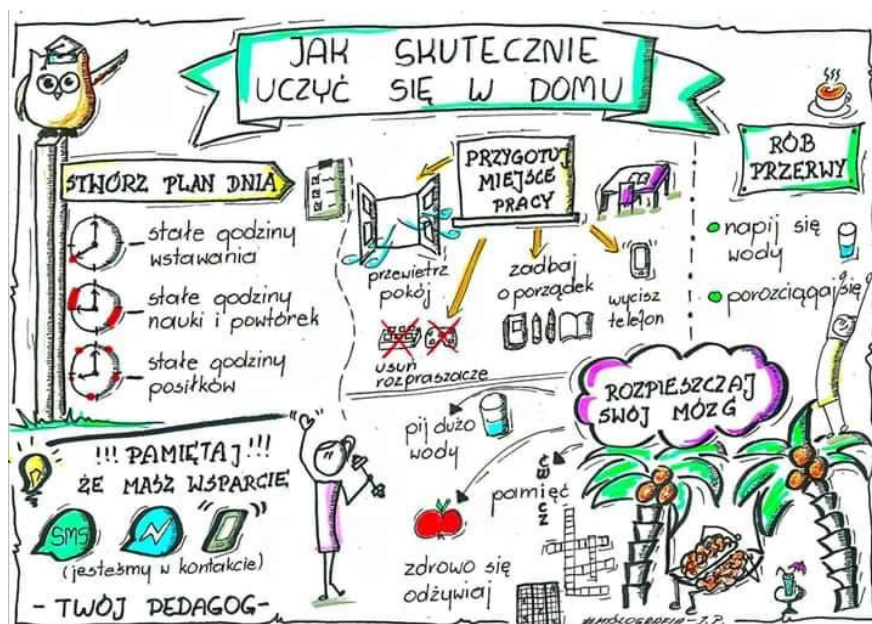 JAK SKUTECZNIE
UCZYĆ SIĘ W DOMU
STWÓRZ PLAN DNIA
stałe godziny
wstawania
stałe godziny
nauki i powtórek
stałe godziny
posiłków
PRZYGOTUJ
MIEJSCE
PRACY
przewietrz
pokój
zadbaj
o porządek
wycisz
telefon
usuń
rozpraszacze
RÓB
PRZERWY
napij się
wody
porozciągaj się
ROZPIESZCZAJ
SWÓJ MÓZG
pij dużo
wody
ćwicz
pamięć
zdrowo się
odżywiaj
!!! PAMIĘTAJ !!!
ŻE MASZ WSPARCIE
SMS
(jesteśmy w kontakcie)
- TWÓJ PEDAGOG -
#MYŚLOGRAFIA - J.P.